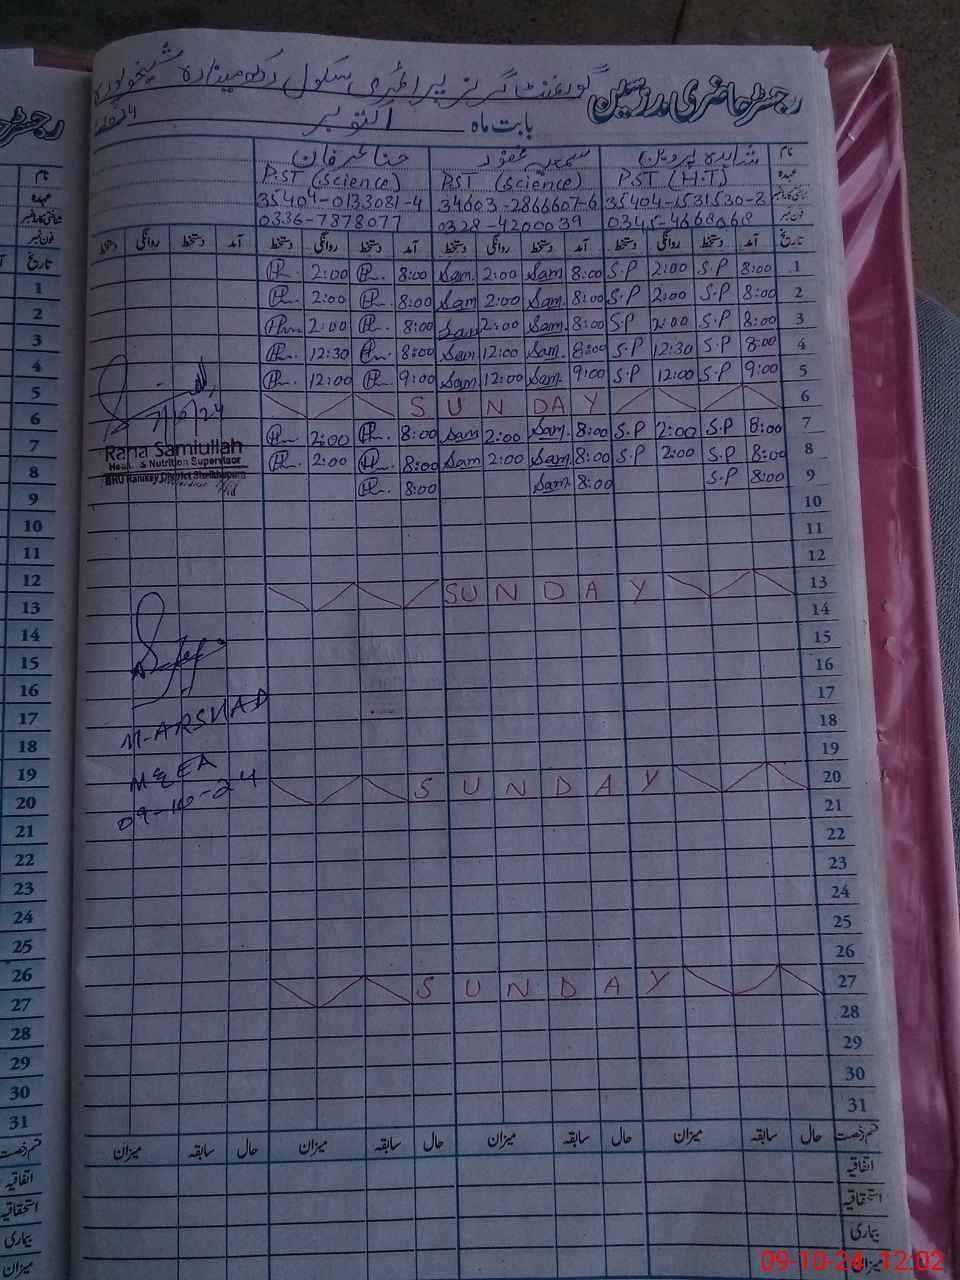 رجسٹر حاضری مدرسین گورنمنٹ گرلز پرائمری سکول رکھ مینارہ شیخوپورہ
بابت ماہ اکتوبر 2024
نام شاہدہ پروین سمعیہ غفور حنا عرفان
عہدہ PST (H.T) PST (Science) PST (Science)
شناختی کارڈ نمبر 35404-1531530-2 34603-2866607-6 35404-0133081-4
فون نمبر 0345-4668068 0328-4200039 0336-7878077
تاریخ آمد دستخط روانگی دستخط آمد دستخط روانگی دستخط آمد دستخط روانگی دستخط آمد دستخط روانگی دستخط
1 8:00 S.P 2:00 S.P 8:00 Sam 2:00 Sam 8:00 2:00
2 8:00 S.P 2:00 S.P 8:00 Sam 2:00 Sam 8:00 2:00
3 8:00 S.P 2:00 S.P 8:00 Sam 2:00 Sam 8:00 2:00
4 8:00 S.P 12:30 S.P 8:00 Sam 12:00 Sam 8:00 12:30
5 9:00 S.P 12:00 S.P 9:00 Sam 12:00 Sam 9:00 12:00
6 SUNDAY
7 8:00 S.P 2:00 S.P 8:00 Sam 2:00 Sam 8:00 2:00
8 8:00 S.P 2:00 S.P 8:00 Sam 2:00 Sam 8:00 2:00
9 8:00 S.P 8:00 Sam 8:00
7/10/24
Rana Samiullah
Health & Nutrition Supervisor
BHU Ranikay District Sheikhupura
10
11
12
13 SUNDAY
14
15
16
17
M-ARSHAD
18
19
MEEA
20 SUNDAY
09-10-24
21
22
23
24
25
26
27 SUNDAY
28
29
30
31
قسم رخصت حال سابقہ میزان حال سابقہ میزان حال سابقہ میزان
اتفاقیہ
استحقاقیہ
بیماری
میزان
رجسٹر
نام
عہدہ
شناختی کارڈ نمبر
فون نمبر
تاریخ
1
2
3
4
5
6
7
8
9
10
11
12
13
14
15
16
17
18
19
20
21
22
23
24
25
26
27
28
29
30
31
قسم رخصت
اتفاقیہ
استحقاقیہ
بیماری
میزان
09-10-24 12:02